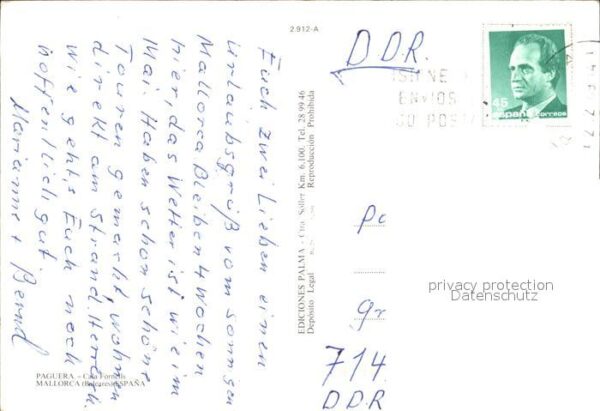 2.912-A
Euch zwei Lieben einen
Urlaubsgruß vom sonnigen
Mallorca. Bleiben 4 Wochen
hier, das Wetter ist wie im
Mai. Haben schon schöne
Touren gemacht, wohnen
direkt am Strand. Herrlich.
Wie geht's Euch noch
hoffentlich gut.
Marianne + Bernd
PAGUERA - Cala Fornells
MALLORCA (Baleares) ESPAÑA
EDICIONES PALMA - Ctra. Soller Km. 6,100. Tel. 28 99 46
Depósito Legal Reproducción Prohibida
DDR.
ENVIOS
45
España correos
Pa
gr
714.
DDR
privacy protection
Datenschutz